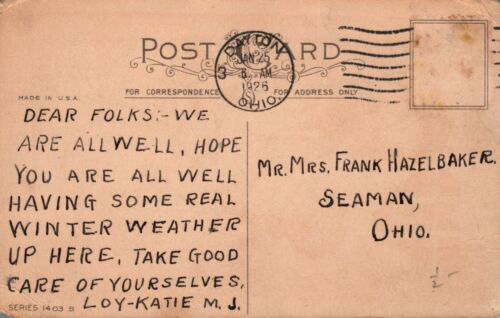 POST CARD
DAYTON
JAN 25
8 AM
1926
OHIO
MADE IN U.S.A.
FOR CORRESPONDENCE
FOR ADDRESS ONLY
DEAR FOLKS:-WE
ARE ALL WELL, HOPE
YOU ARE ALL WELL
HAVING SOME REAL
WINTER WEATHER
UP HERE, TAKE GOOD
CARE OF YOURSELVES,
LOY-KATIE M. J.
SERIES 1403 B
MR. MRS. FRANK HAZELBAKER.
SEAMAN,
OHIO.
1/2-